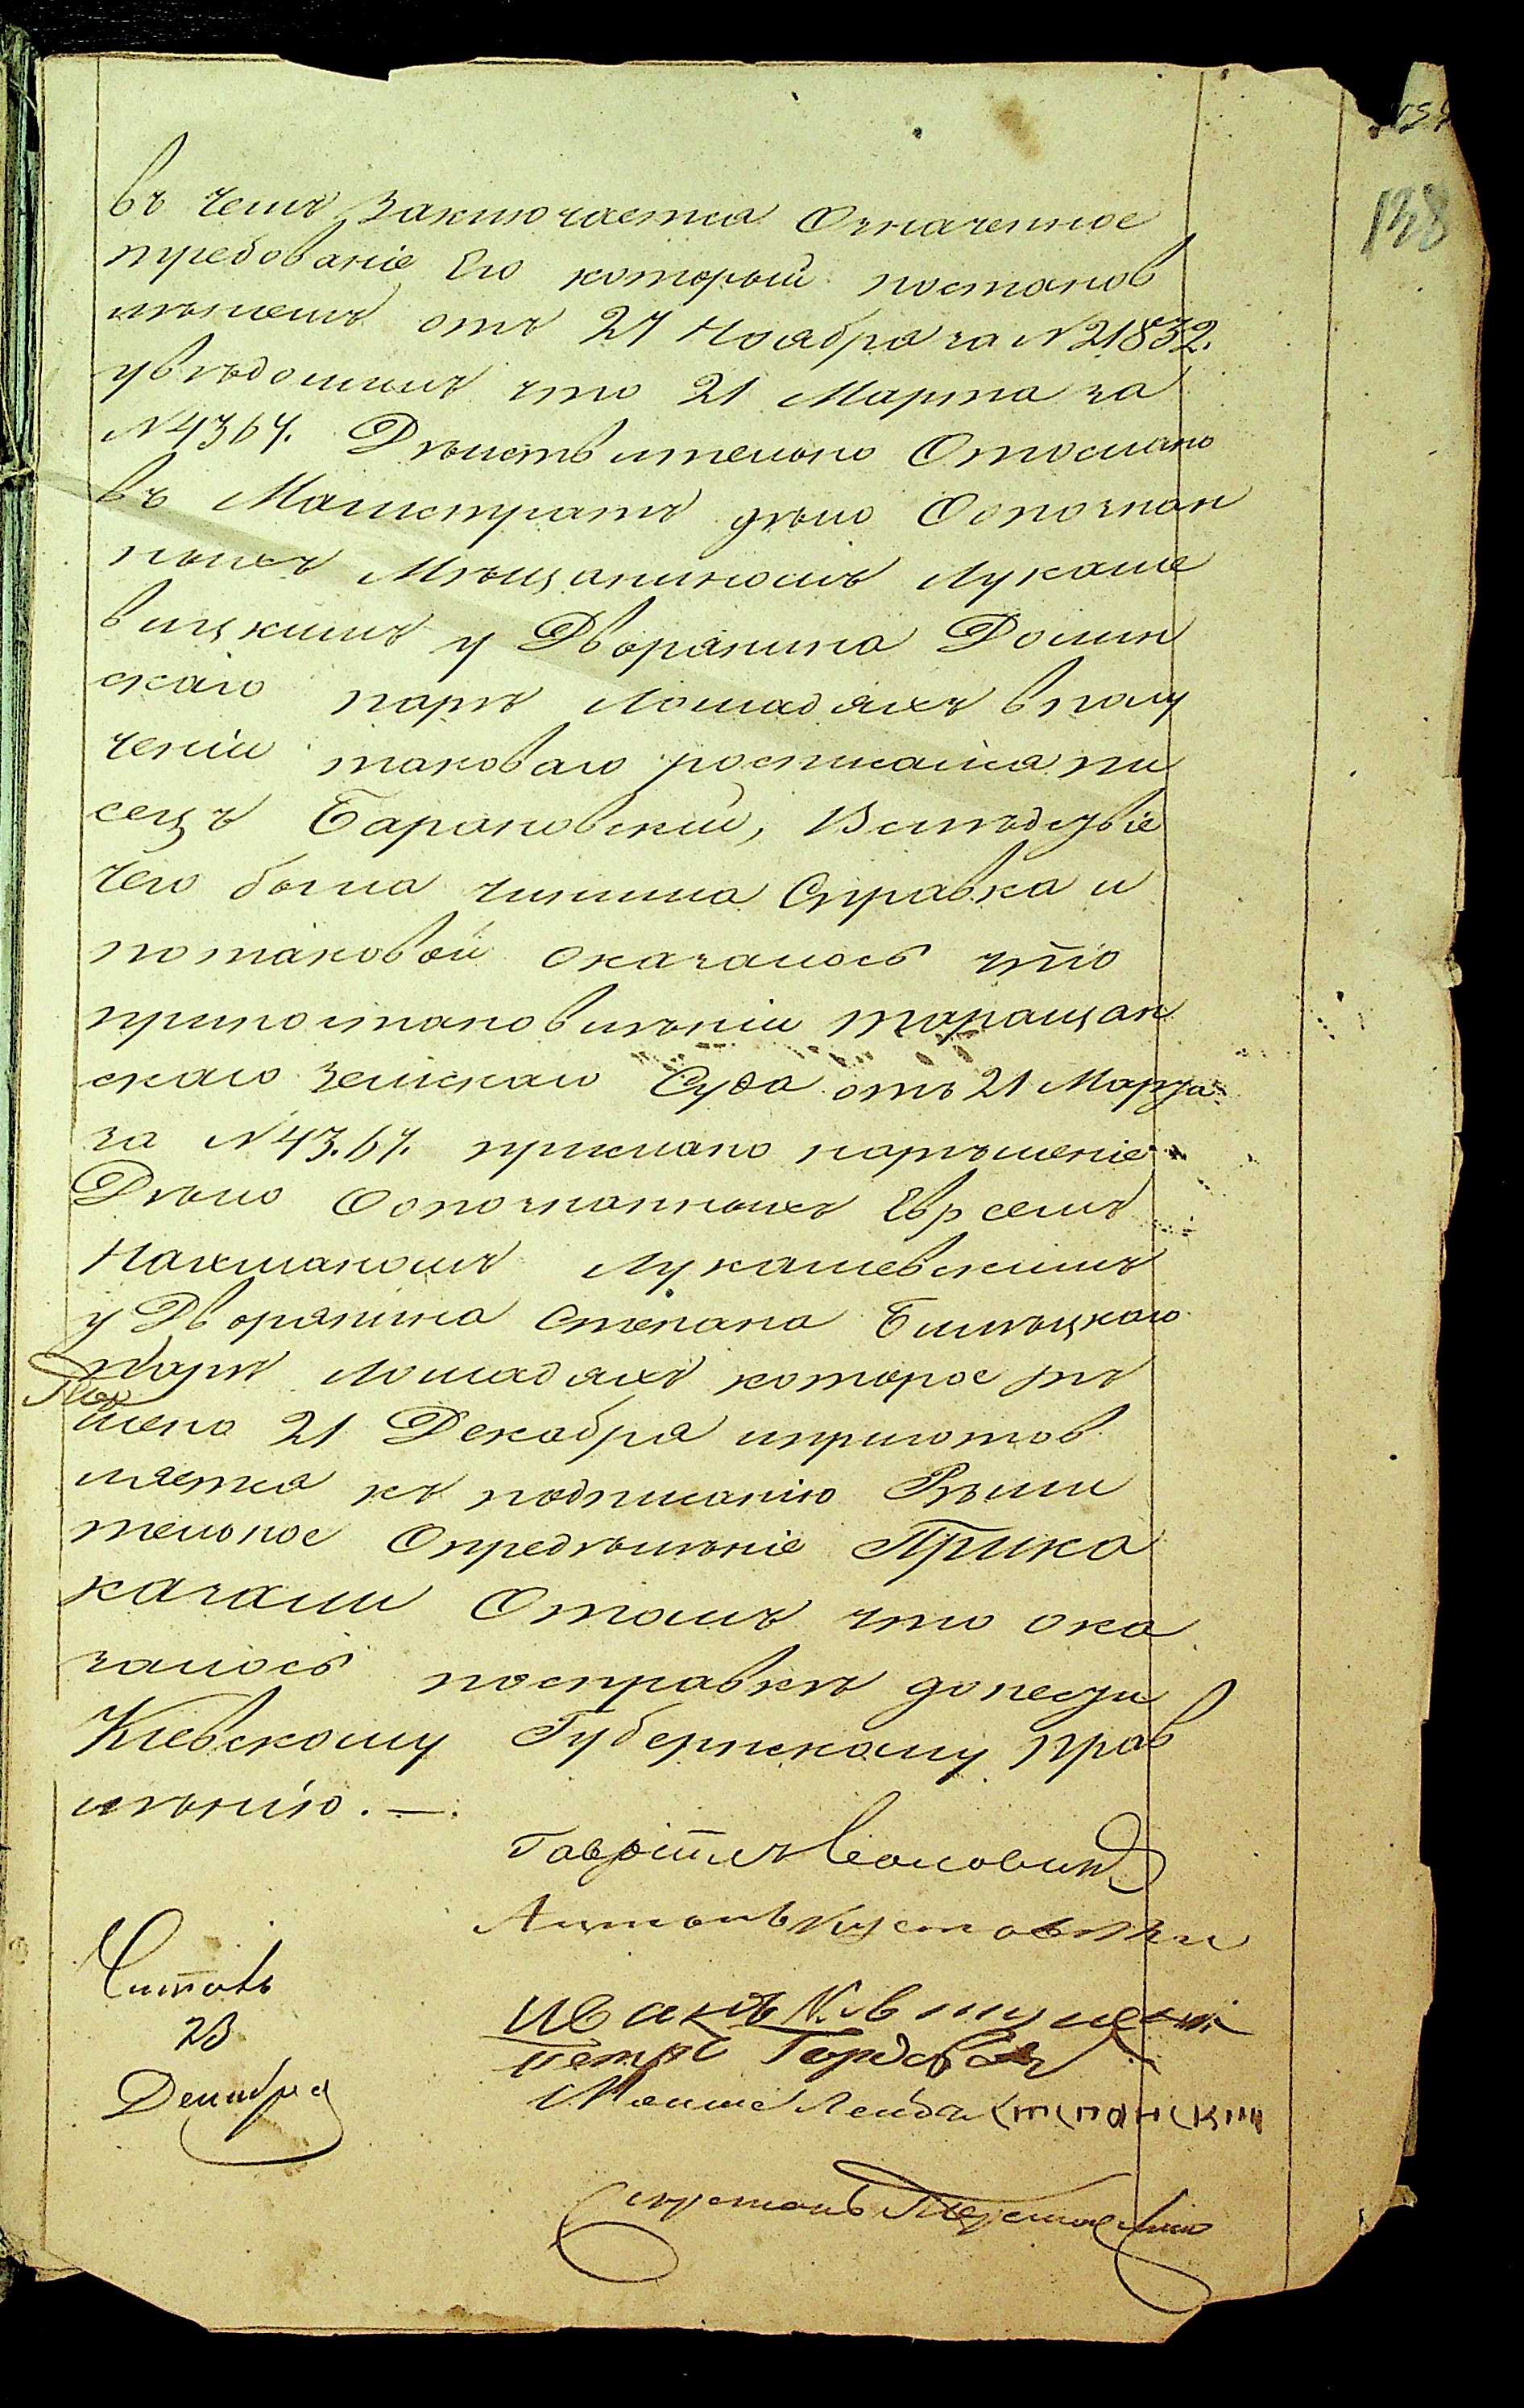 138
въ чемъ заключается Означенное
требованіе Его который постанов
лѣнемъ отъ 27 Ноября за N 21832.
увѣдомилъ что 21 Марта за
N 4367. Дѣиствително Отослано
въ Магистратъ дѣло Оопознан
ныхъ Мѣщаниномъ Лукаше
вицкимъ у Дворянина Долин
скаго парѣ Лошадяхъ вполу
ченіи таковаго росписался пи
сецъ Барановскій, Вслѣдствіе
чего была чинима Справка и
потаковой оказалось что
припостановлѣніи таращан
скаго земскаго Суда отъ 21 Марта
за N 43.67. прислано нарѣшеніе
Дѣло Оопознанныхъ Евреемъ
Нахманомъ Лукашевскимъ
у Дворянина Степана Билѣцкаго
парѣ Лошадяхъ которое рѣ
шено 21 Декабря иприготов
ляется къ подписанію Рѣши
тельное Опредѣлѣніе Прика
казали Отомъ что ока
залось посправкѣ донести
Кіевскому Губернскому прав
лѣнію. —.
Гавріилъ
Антонъ
Читалъ
23
Декабря
Иванъ
Петръ
Мошко Лейба
Секретарь